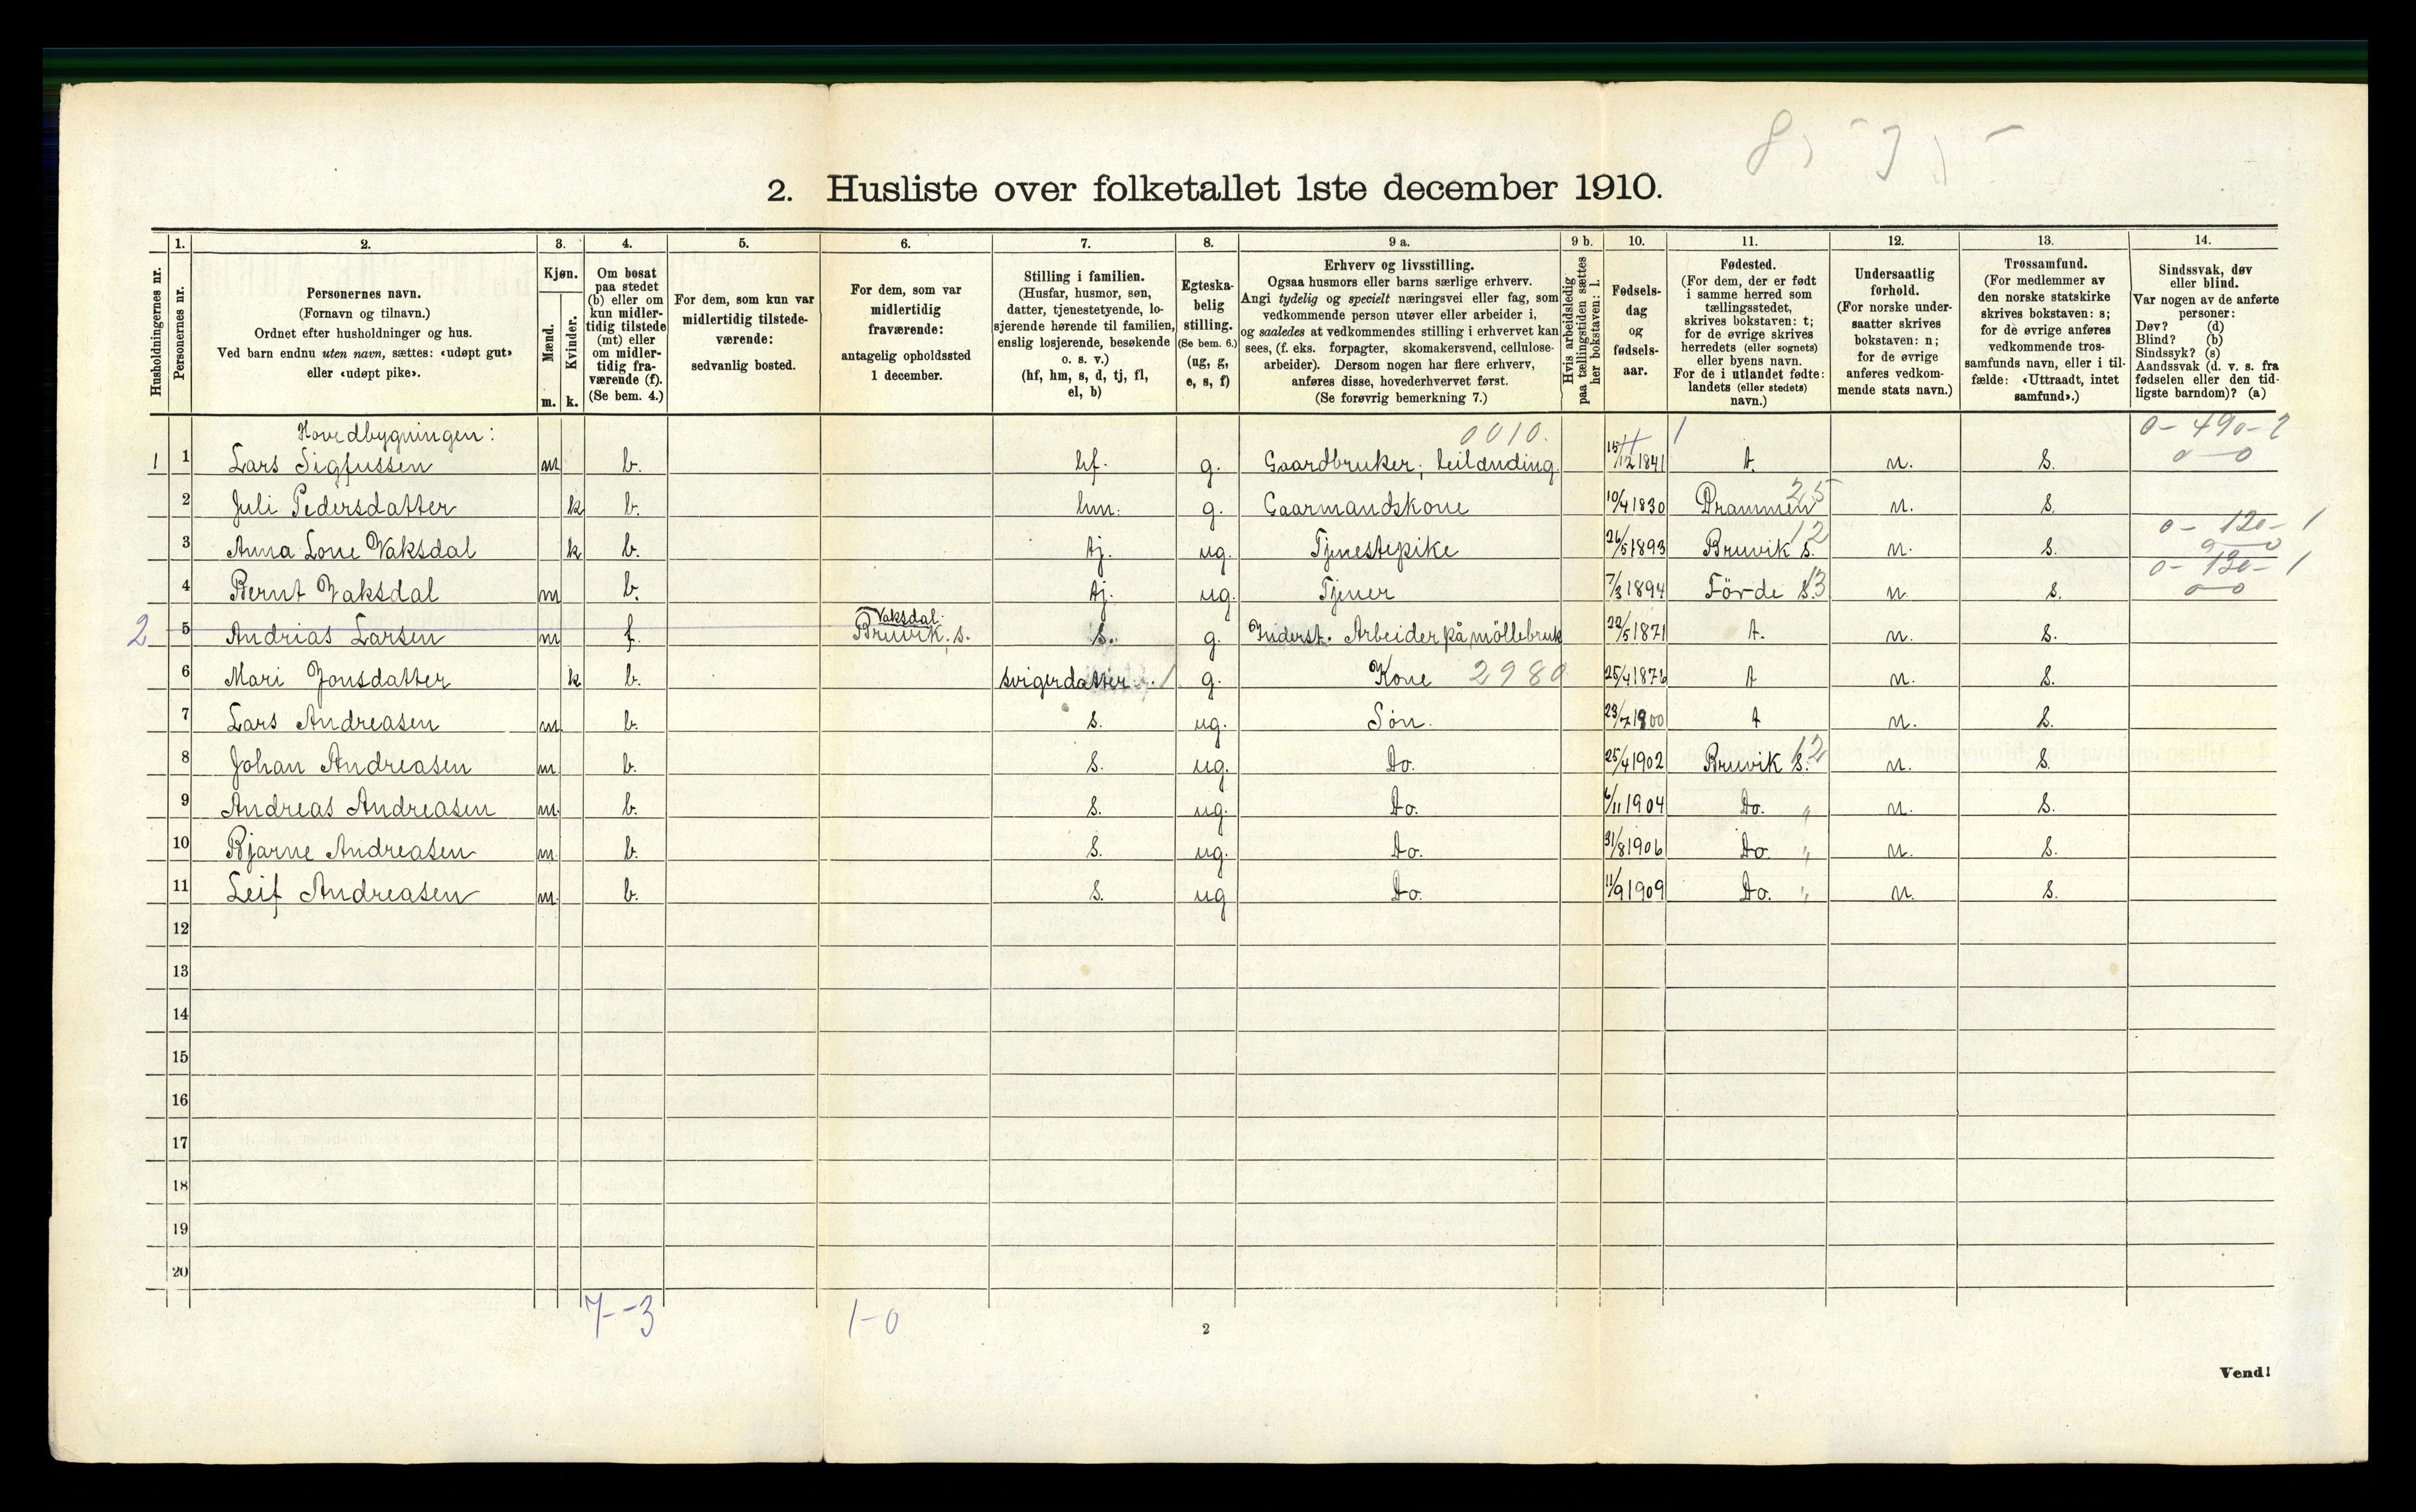 2. Husliste over folketallet 1ste december 1910.
Husholdningernes nr.
1. Personernes nr.
2. Personernes navn. (Fornavn og tilnavn.) Ordnet efter husholdninger og hus. Ved barn endnu uten navn, sættes: «udøpt gut» eller «udøpt pike».
3. Kjøn. Mænd. m. Kvinder. k.
4. Om bosat paa stedet (b) eller om kun midlertidig tilstede (mt) eller om midlertidig fraværende (f). (Se bem. 4.)
5. For dem, som kun var midlertidig tilstedeværende: sedvanlig bosted.
6. For dem, som var midlertidig fraværende: antagelig opholdssted 1 december.
7. Stilling i familien. (Husfar, husmor, søn, datter, tjenestetyende, losjerende hørende til familien, enslig losjerende, besøkende o. s. v.) (hf, hm, s, d, tj, fl, el, b)
8. Egteskabelig stilling. (Se bem. 6.) (ug, g, e, s, f)
9 a. Erhverv og livsstilling. Ogsaa husmors eller barns særlige erhverv. Angi tydelig og specielt næringsvei eller fag, som vedkommende person utøver eller arbeider i, og saaledes at vedkommendes stilling i erhvervet kan sees, (f. eks. forpagter, skomakersvend, cellulosearbeider). Dersom nogen har flere erhverv, anføres disse, hovederhvervet først. (Se forøvrig bemerkning 7.)
9 b. Hvis arbeidsledig paa tællingstiden sættes her bokstaven: l.
10. Fødselsdag og fødselsaar.
11. Fødested. (For dem, der er født i samme herred som tællingsstedet, skrives bokstaven: t; for de øvrige skrives herredets (eller sognets) eller byens navn. For de i utlandet fødte: landets (eller stedets) navn.)
12. Undersaatlig forhold. (For norske undersaatter skrives bokstaven: n; for de øvrige anføres vedkommende stats navn.)
13. Trossamfund. (For medlemmer av den norske statskirke skrives bokstaven: s; for de øvrige anføres vedkommende trossamfunds navn, eller i tilfælde: «Uttraadt, intet samfund».)
14. Sindssvak, døv eller blind. Var nogen av de anførte personer: Døv? (d) Blind? (b) Sindssyk? (s) Aandssvak (d. v. s. fra fødselen eller den tidligste barndom)? (a)
Hovedbygningen: 0010. 0-490-2
1 1 Lars Sigfussen m b. hf. g. Gaardbruker, leilænding 15/12 1841 t. n. S. 0-0
2 Juli Pedersdatter k b. hm. g. Gaarmandskone 10/4 1830 Drammen 25 n. S.
3 Anna Lone Vaksdal k b. tj. ug. Tjenestepike 26/5 1893 Bruvik S. 12 n. S. 0-120-1 0-0
4 Bernt Vaksdal m b. tj. ug. Tjener 7/3 1894 Förde S. 13 n. s. 0-130-1 0-0
2 5 Andrias Larsen m f. Vaksdal. Bruvik. s. S. g. Inderst. Arbeider på möllebruk 22/5 1871 t. n. S.
6 Mari Jonsdatter k b. svigerdatter g. Kone 2980 25/4 1876 t n. S.
7 Lars Andreasen m b. S. ug. Søn. 23/7 1900 t n. S.
8 Johan Andreasen m. b. S. ug. Do. 25/4 1902 Bruvik S. 12 n. S.
9 Andreas Andreasen m. b. S. ug. Do. 6/11 1904 Do. " n. S.
10 Bjarne Andreasen m. b. S. ug. Do. 31/8 1906 Do. " n. S.
11 Leif Andreasen m. b. S. ug Do. 11/9 1909 Do. " n. S.
12
13
14
15
16
17
18
19
20
7-3 1-0
2
Vend!